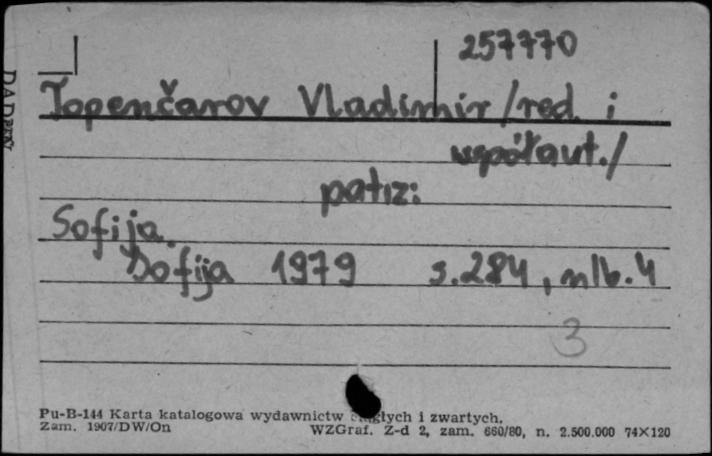 257770
Topenčarov Vladimir /red. i
współaut./
patrz:
Sofija.
Sofija 1979 s. 284, nlb. 4
3
Pu-B-144 Karta katalogowa wydawnictw ciągłych i zwartych.
Zam. 1907/DW/On WZGraf. Z-d 2, zam. 660/80, n. 2.500.000 74×120